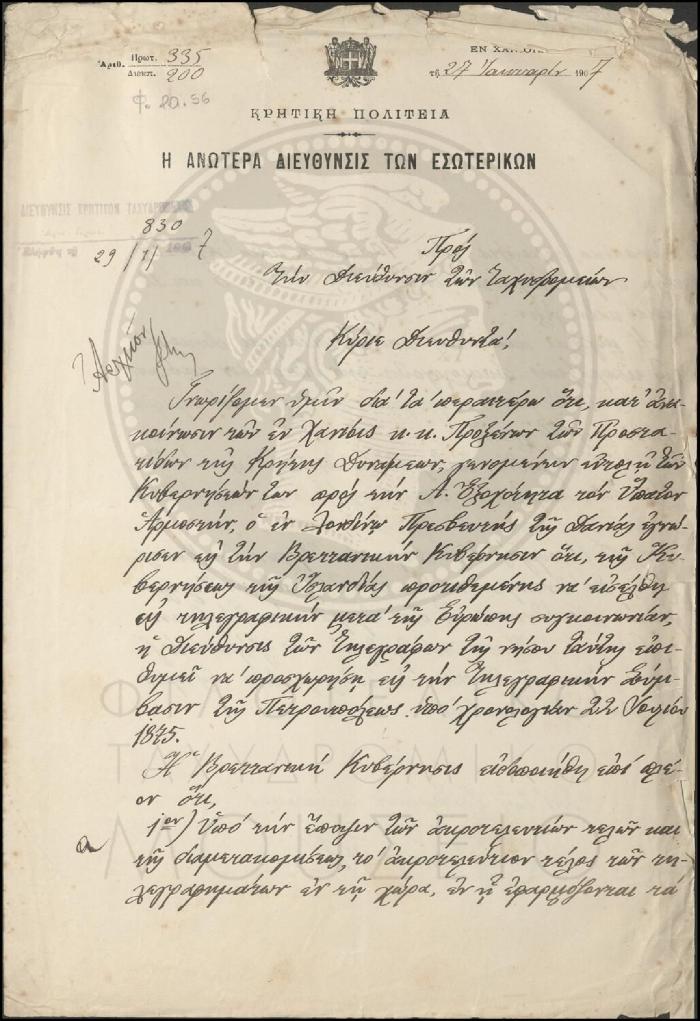 Ἀριθ. Πρωτ. 335
Διεκπ. 200
ΕΝ ΧΑΝΙΟΙΣ
τῇ 27 Ἰανουαρίου 1907
Φ. 20.56
ΚΡΗΤΙΚΗ ΠΟΛΙΤΕΙΑ
Η ΑΝΩΤΕΡΑ ΔΙΕΥΘΥΝΣΙΣ ΤΩΝ ΕΣΩΤΕΡΙΚΩΝ
ΔΙΕΥΘΥΝΣΙΣ ΚΡΗΤΙΚΩΝ ΤΑΧΥΔΡΟΜΕΙΩΝ
830
29/1/7
Πρός
τὴν Διεύθυνσιν τῶν Ταχυδρομείων
Κύριε Διευθυντά!
Γνωρίζομεν ὑμῖν διὰ τὰ περαιτέρω ὅτι, κατ' ἀνα-
κοίνωσιν τῶν ἐν Χανίοις κ.κ. Προξένων τῶν Προστα-
τίδων τῆς Κρήτης Δυνάμεων, γενομένην ἐντολῇ τῶν
Κυβερνήσεών των πρὸς τὴν Α. Ἐξοχότητα τὸν Ὕπατον
Ἁρμοστήν, ὁ ἐν Λονδίνῳ Πρεσβευτὴς τῆς Δανίας ἐγνώ-
ρισεν εἰς τὴν Βρεττανικὴν Κυβέρνησιν ὅτι, τῆς Κυ-
βερνήσεως τῆς Ἰσλανδίας προτιθεμένης νὰ εἰσέλθῃ
εἰς τηλεγραφικὴν μετὰ τῆς Εὐρώπης συγκοινωνίαν,
ἡ Διεύθυνσις τῶν Τηλεγράφων τῆς νήσου ταύτης ἐπι-
θυμεῖ νὰ προσχωρήσῃ εἰς τὴν Τηλεγραφικὴν Σύμ-
βασιν τῆς Πετρουπόλεως ὑπὸ χρονολογίαν 22 Ἰουλίου
1875.
Ἡ Βρεττανικὴ Κυβέρνησις εἰδοποιήθη ἐπὶ πλέ-
ον ὅτι,
1ον) Ὑπὸ τὴν ἔποψιν τῶν ἀκροτελευτίων τελῶν καὶ
τῆς διαμετακομίσεως, τὸ ἀκροτελεύτιον τέλος τῶν τη-
λεγραφημάτων ἐν τῇ χώρᾳ, ἐν ᾗ ἐφαρμόζονται τὰ
ΦΙΛΟΤΕΛΙΚΟ
ΤΑΧΥΔΡΟΜΙΚΟ
ΜΟΥΣΕΙΟ